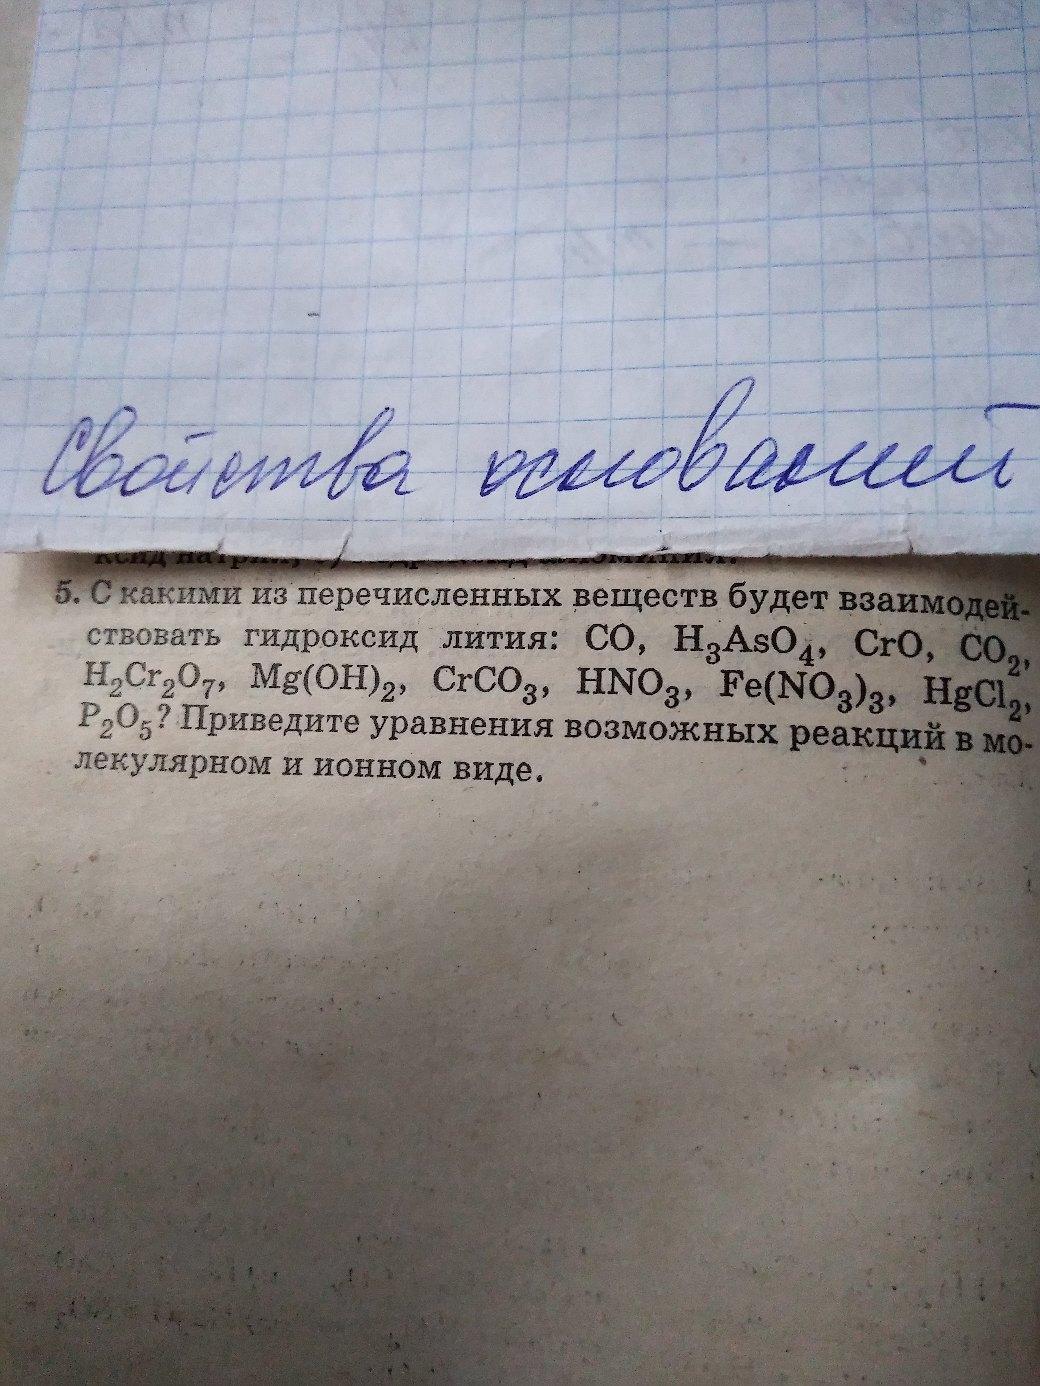 Свойства оснований
5. С какими из перечисленных веществ будет взаимодей-
ствовать гидроксид лития: CO, H₃AsO₄, CrO, CO₂,
H₂Cr₂O₇, Mg(OH)₂, CrCO₃, HNO₃, Fe(NO₃)₃, HgCl₂,
P₂O₅? Приведите уравнения возможных реакций в мо-
лекулярном и ионном виде.